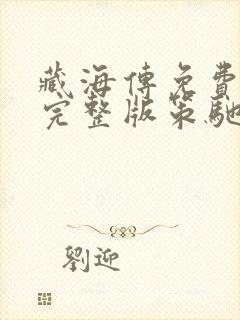 藏海傳免費
完整版策馳
劉迎